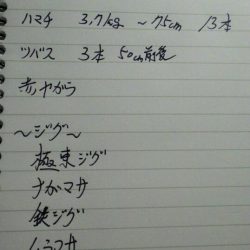 ハマチ 3,7kg 〜75cm 13本
ツバス 3本 50cm前後
赤ヤガラ
〜ジグ〜
極東ジグ
ナガマサ
鉄ジグ